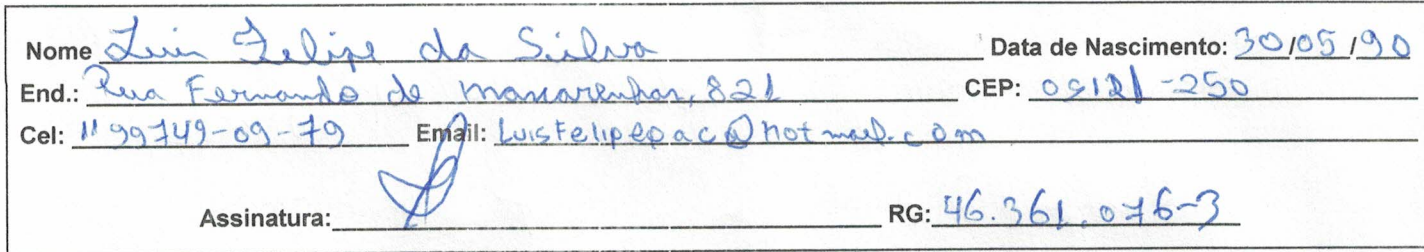 Nome Luis Felipe da Silva Data de Nascimento: 30/05/90
End.: Rua Fernando de mascarenhas, 821 CEP: 05121-250
Cel: 11 99749-09-79 Email: Luisfelipepac@hotmail.com
Assinatura: RG: 46.361.076-3